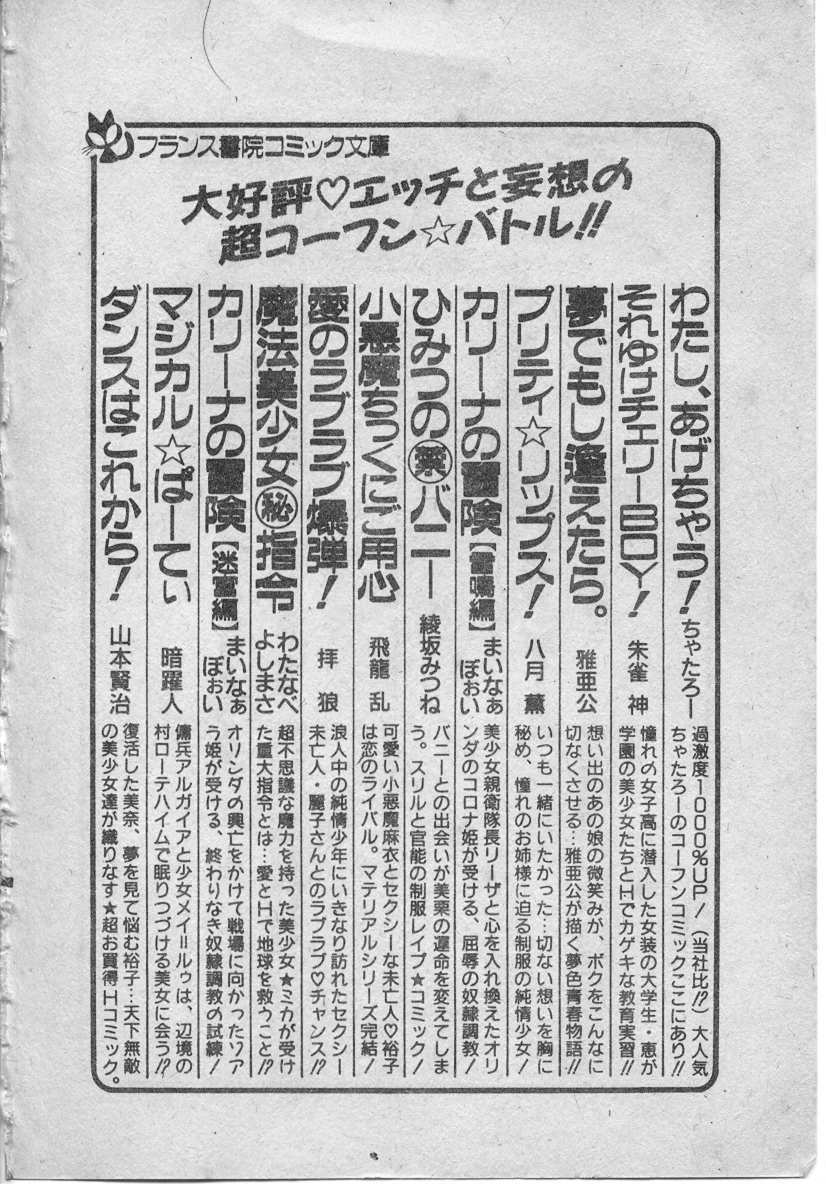 フランス書院コミック文庫
大好評♡エッチと妄想の
超コーフン☆バトル!!
わたし、あげちゃう! ちゃたろー
過激度1000%UP!(当社比!?)大人気
ちゃたろーのコーフンコミックここにあり!!
それゆけチェリーBOY! 朱雀 神
憧れの女子高に潜入した女装の大学生・恵が
学園の美少女たちとHでカゲキな教育実習!!
夢でもし逢えたら。 雅亜公
想い出のあの娘の微笑みが、ボクをこんなに
切なくさせる…雅亜公が描く夢色青春物語!!
プリティ☆リップス! 八月 薫
いつも一緒にいたかった…切ない想いを胸に
秘め、憧れのお姉様に迫る制服の純情少女!
カリーナの冒険【雷鳴編】 まいなぁぼぉい
美少女親衛隊長リーザと心を入れ換えたオリ
ンダのコロナ姫が受ける、屈辱の奴隷調教!
ひみつの㊙バニー 綾坂みつね
バニーとの出会いが美栗の運命を変えてしま
う。スリルと官能の制服レイプ★コミック!
小悪魔ちっくにご用心 飛龍 乱
可愛い小悪魔麻衣とセクシーな未亡人♡裕子
は恋のライバル。マテリアルシリーズ完結!
愛のラブラブ爆弾! 拝 狼
浪人中の純情少年にいきなり訪れたセクシー
未亡人・麗子さんとのラブラブ♡チャンス!?
魔法美少女㊙指令 わたなべよしまさ
超不思議な魔力を持った美少女★ミカが受け
た重大指令とは…愛とHで地球を救うこと!?
カリーナの冒険【迷宮編】 まいなぁぼぉい
オリンダの興亡をかけて戦場に向かったソア
ラ姫が受ける、終わりなき奴隷調教の試練!
マジカル☆ぱーてぃ 暗躍人
傭兵アルガイアと少女メイ=ルゥは、辺境の
村ローテハイムで眠りつづける美女に会う!?
ダンスはこれから! 山本賢治
復活した美奈、夢を見て悩む裕子…天下無敵
の美少女達が織りなす★超お買得Hコミック。